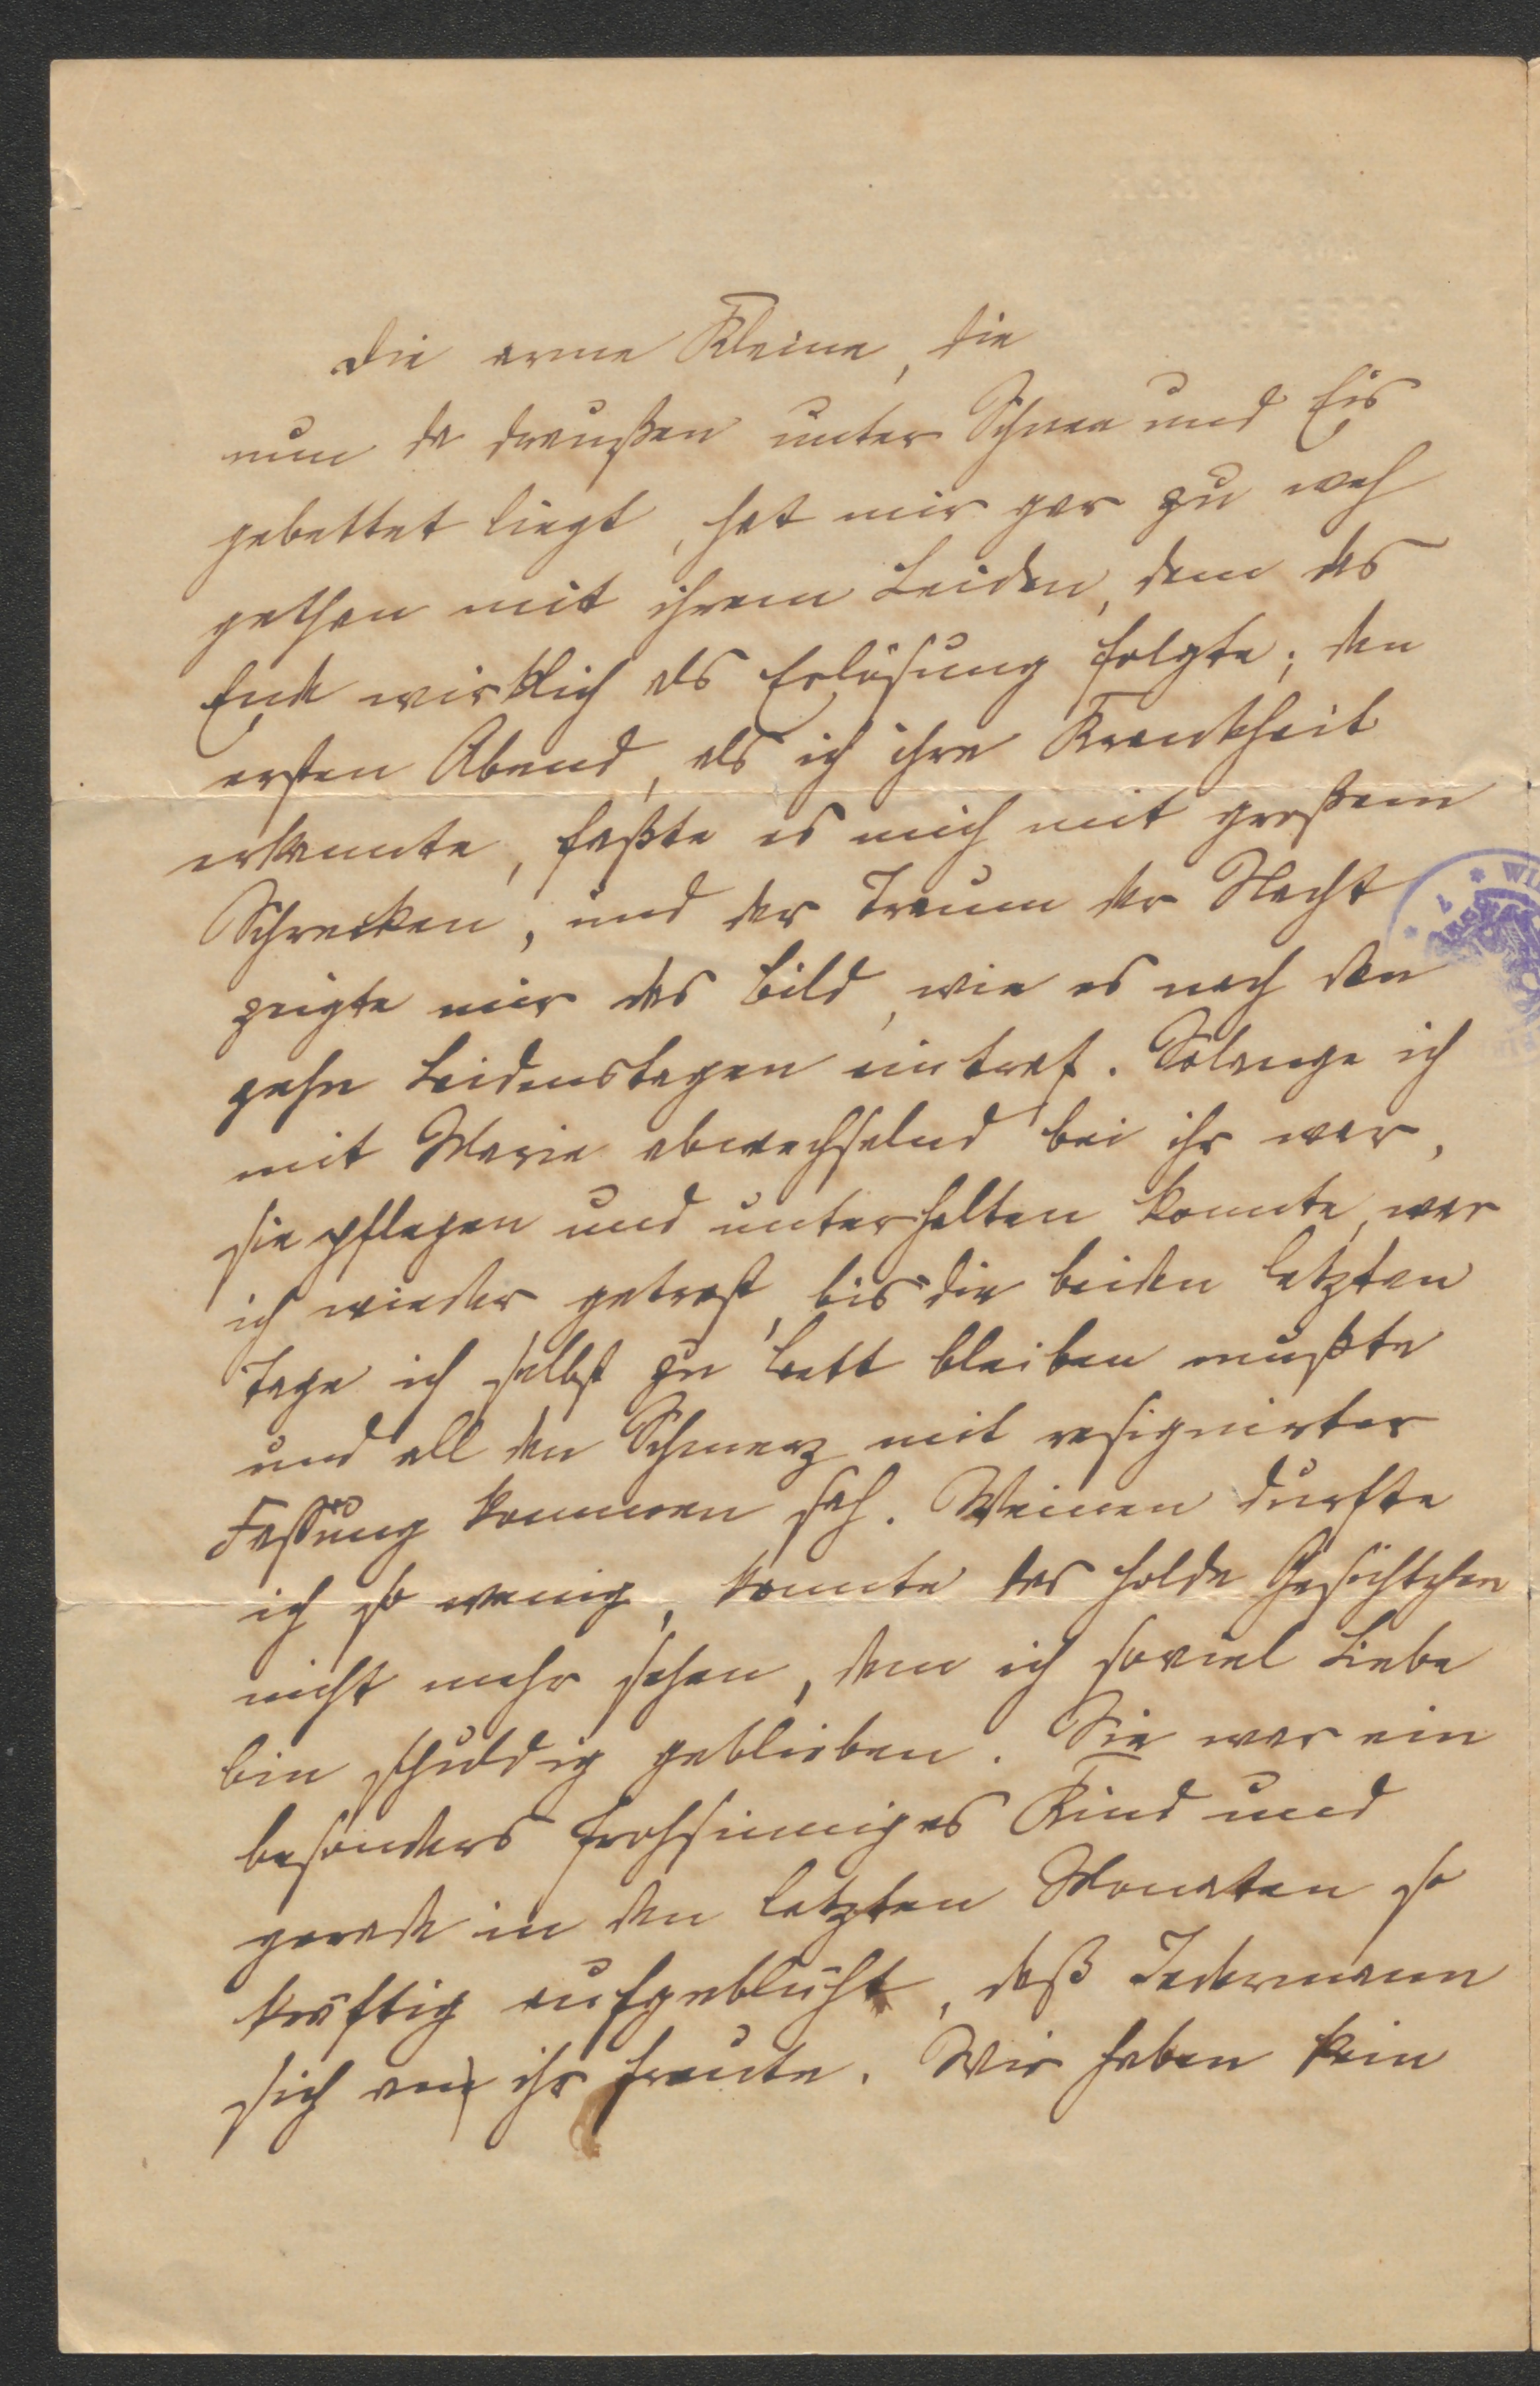 Die arme Kleine, die
nun da draußen unter Schnee und Eis
gebettet liegt, hat mir gar zu weh
gethan mit ihrem Leiden, dem das
Ende wirklich als Erlösung folgte; den
ersten Abend, als ich ihre Krankheit
erkannte, faßte es mich mit großem
Schrecken, und der Traum der Nacht
zeigte mir das Bild, wie es nach den
zehn Leidenstagen eintraf. Solange ich
mit Marie abwechselnd bei ihr war,
sie pflegen und unterhalten konnte, war
ich wieder getrost, bis die beiden letzten
Tage ich selbst zu Bett bleiben mußte
und all den Schmerz mit resignirter
Fassung kommen sah. Weinen durfte
ich so wenig, konnte das holde Gesichtchen
nicht mehr sehen, dem ich soviel Liebe
bin schuldig geblieben. Sie war ein
besonders frohsinniges Kind und
gerade in den letzten Monaten so
kräftig aufgeblüht, daß Jedermann
sich an ihr freute. Wir haben kein